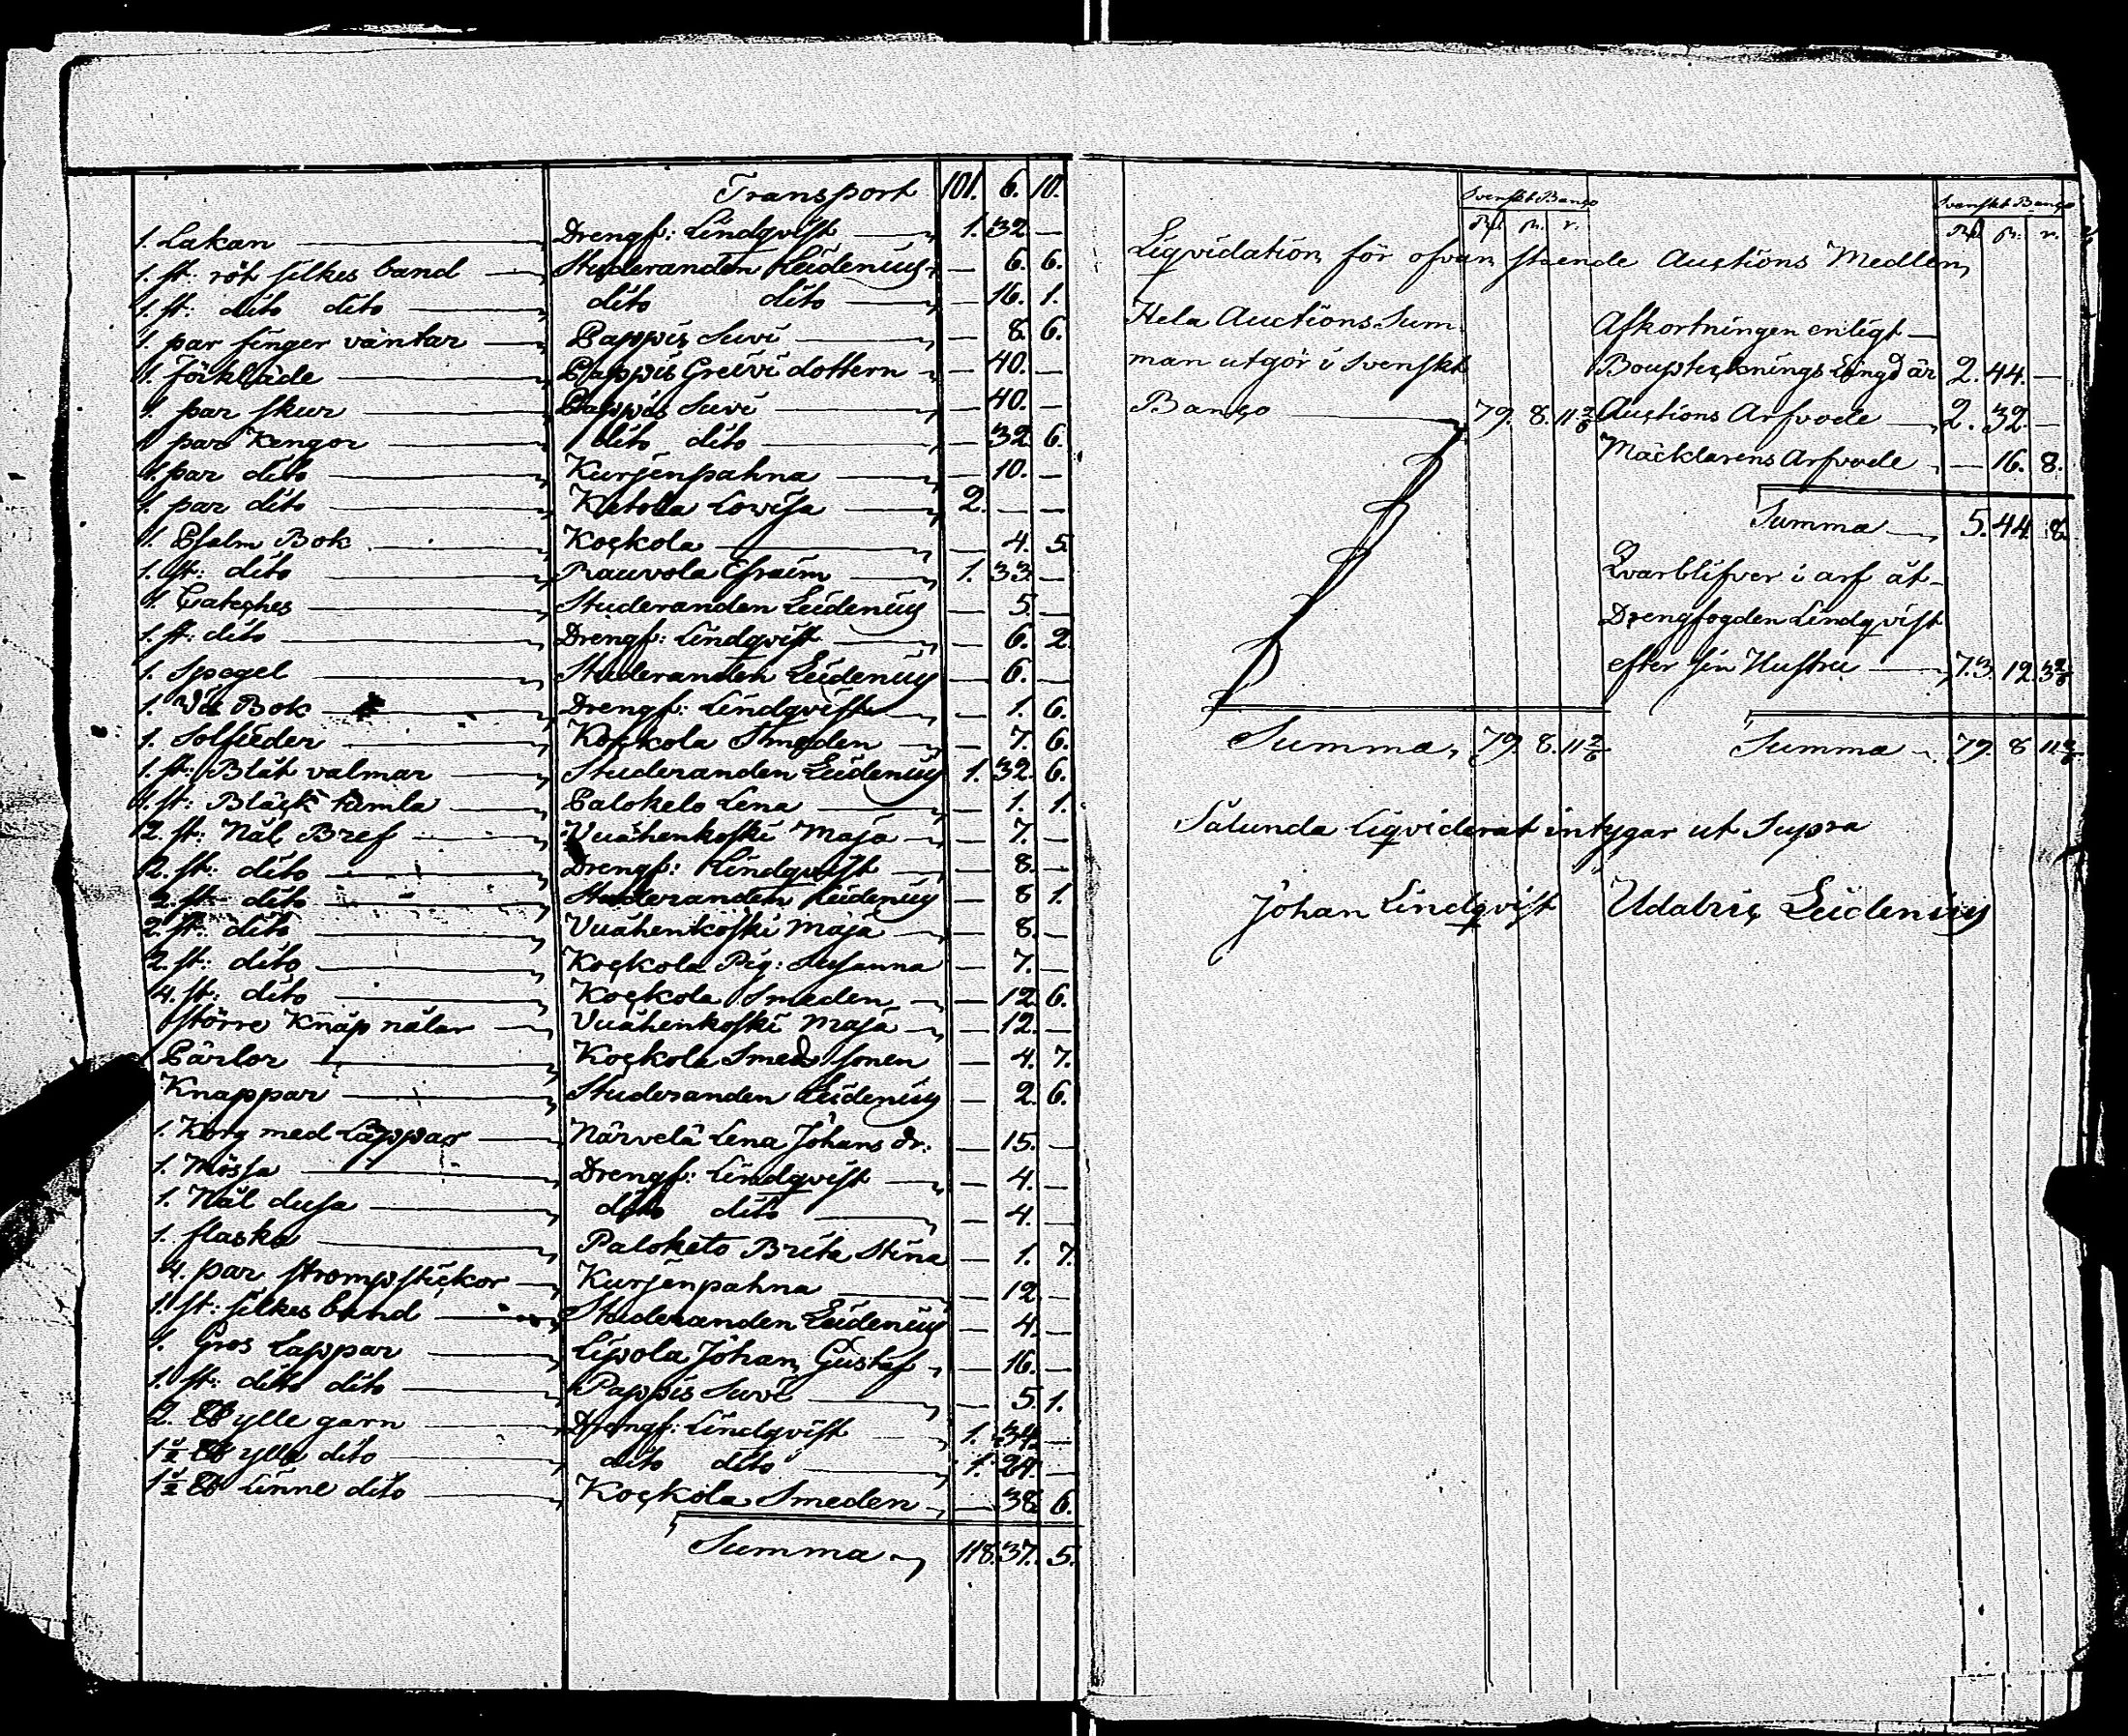 Transport 101. 6. 10.
1. Lakan Drengf: Lindqvist 1. 32. —
1. st: röt silkes band Studeranden Leidenius — 6. 6.
1. st: dito dito dito dito — 16. 1.
1. par finger vantar Pappis Suvi — 8. 6.
1. Förkläde Pappis Greivi dottern — 40. —
1. par skur Pappis Suvi — 40. —
1. par Kengor dito dito — 32. 6.
1. par dito Kurjenpahna — 10. —
1. par dito Ketola Lovisa 2. — —
1. Psalm Bok Kockola — 4. 5.
1. st: dito Rauvola Efraim 1. 33. —
1. Cateches Studeranden Leidenius — 5. —
1. st: dito Drengf: Lindqvist — 6. 2.
1. Spegel Studeranden Leidenius — 6. —
1. Bok Drengf: Lindqvist — 1. 6.
1. Solfieder Kockola Smeden — 7. 6.
1. st: Blåt valmar Studeranden Leidenius 1. 32. 6.
1. st: Bläck Lena — 1. 1.
2. st: Nål Bref Vuähenkoski Maja — 7. —
2. st: dito Drengf: Lindqvist — 8. —
2. st: dito Studeranden Leidenius — 8 1.
2. st: dito Vuähenkoski Maja — 8. —
2. st: dito Kockola Pig: Susanna — 7. —
4. st: dito Kockola Smeden — 12. 6.
större Knäp nålar Vuähenkoski Maja — 12. —
Pärlor Kockola Smeds sonen — 4. 7.
Knappar Studeranden Leidenius — 2. 6.
1. Korg med Lappar Närvelä Lena Johans dr: — 15. —
1. Mössa Drengf: Lindqvist — 4. —
1. Nål dusa dito dito — 4. —
1. flaska Paloketo Brita Stina — 1. 7.
4. par strompstickor Kurjenpahna — 12. —
1. st: silkes band Studeranden Leidenius — 4. —
1. Gros Lappar Lipola Johan Gustaf — 16. —
1. st: dito dito Pappis Suvi — 5. 1.
2. ℔ ylle garn Drengf: Lindqvist 1. 34. —
1½ ℔ ylle dito dito dito 1. 24. —
1½ ℔ Linne dito Kockola Smeden — 38. 6.
Summa 118. 37. 5.
Svenskt Banco
Rd. sk. r.
Svenskt Banco
Rd. sk. r.
Liqvidation för ofvan stående Auctions Medlen,
Hela Auctions Sum
man utgör i Svenskt
Banco 79. 8. 11 2/6
Afkortningen enligt
Bouptecknings Längd är 2. 44. —
Auctions Arfvode 2. 32. —
Mäcklarens Arfvode — 16. 8.
Summa 5. 44. 8.
Qvarblifver i arf åt
Drengfogden Lindqvist
efter sin Hustru 73. 12. 3 2/6
Summa 79. 8. 11 2/6
Summa 79. 8 11 2/6
Sålunda liqviderat intygar ut Supra
Johan Lindqvist Udalric Leidenius